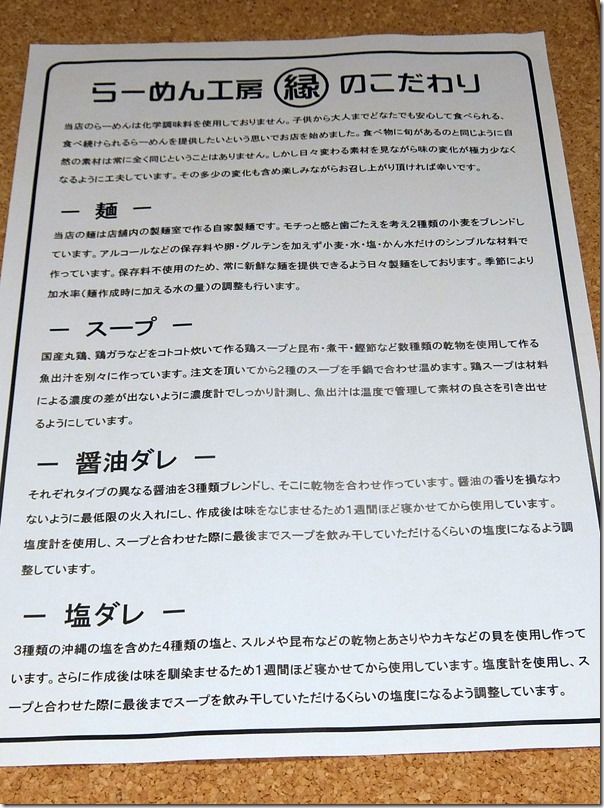 らーめん工房 縁 のこだわり
当店のらーめんは化学調味料を使用しておりません。子供から大人までどなたでも安心して食べられる、
食べ続けられるらーめんを提供したいという思いでお店を始めました。食べ物に旬があるのと同じように自
然の素材は常に全く同じということはありません。しかし日々変わる素材を見ながら味の変化が極力少なく
なるように工夫しています。その多少の変化も含め楽しみながらお召し上がり頂ければ幸いです。
ー 麺 ー
当店の麺は店舗内の製麺室で作る自家製麺です。モチっと感と歯ごたえを考え2種類の小麦をブレンドし
ています。アルコールなどの保存料や卵・グルテンを加えず小麦・水・塩・かん水だけのシンプルな材料で
作っています。保存料不使用のため、常に新鮮な麺を提供できるよう日々製麺をしております。季節により
加水率(麺作成時に加える水の量)の調整も行います。
ー スープ ー
国産丸鶏、鶏ガラなどをコトコト炊いて作る鶏スープと昆布・煮干・鰹節など数種類の乾物を使用して作る
魚出汁を別々に作っています。注文を頂いてから2種のスープを手鍋で合わせ温めます。鶏スープは材料
による濃度の差が出ないように濃度計でしっかり計測し、魚出汁は温度で管理して素材の良さを引き出せ
るようにしています。
ー 醤油ダレ ー
それぞれタイプの異なる醤油を3種類ブレンドし、そこに乾物を合わせ作っています。醤油の香りを損なわ
ないように最低限の火入れにし、作成後は味をなじませるため1週間ほど寝かせてから使用しています。
塩度計を使用し、スープと合わせた際に最後までスープを飲み干していただけるくらいの塩度になるよう調
整しています。
ー 塩ダレ ー
3種類の沖縄の塩を含めた4種類の塩と、スルメや昆布などの乾物とあさりやカキなどの貝を使用し作って
います。さらに作成後は味を馴染ませるため1週間ほど寝かせてから使用しています。塩度計を使用し、ス
ープと合わせた際に最後までスープを飲み干していただけるくらいの塩度になるよう調整しています。